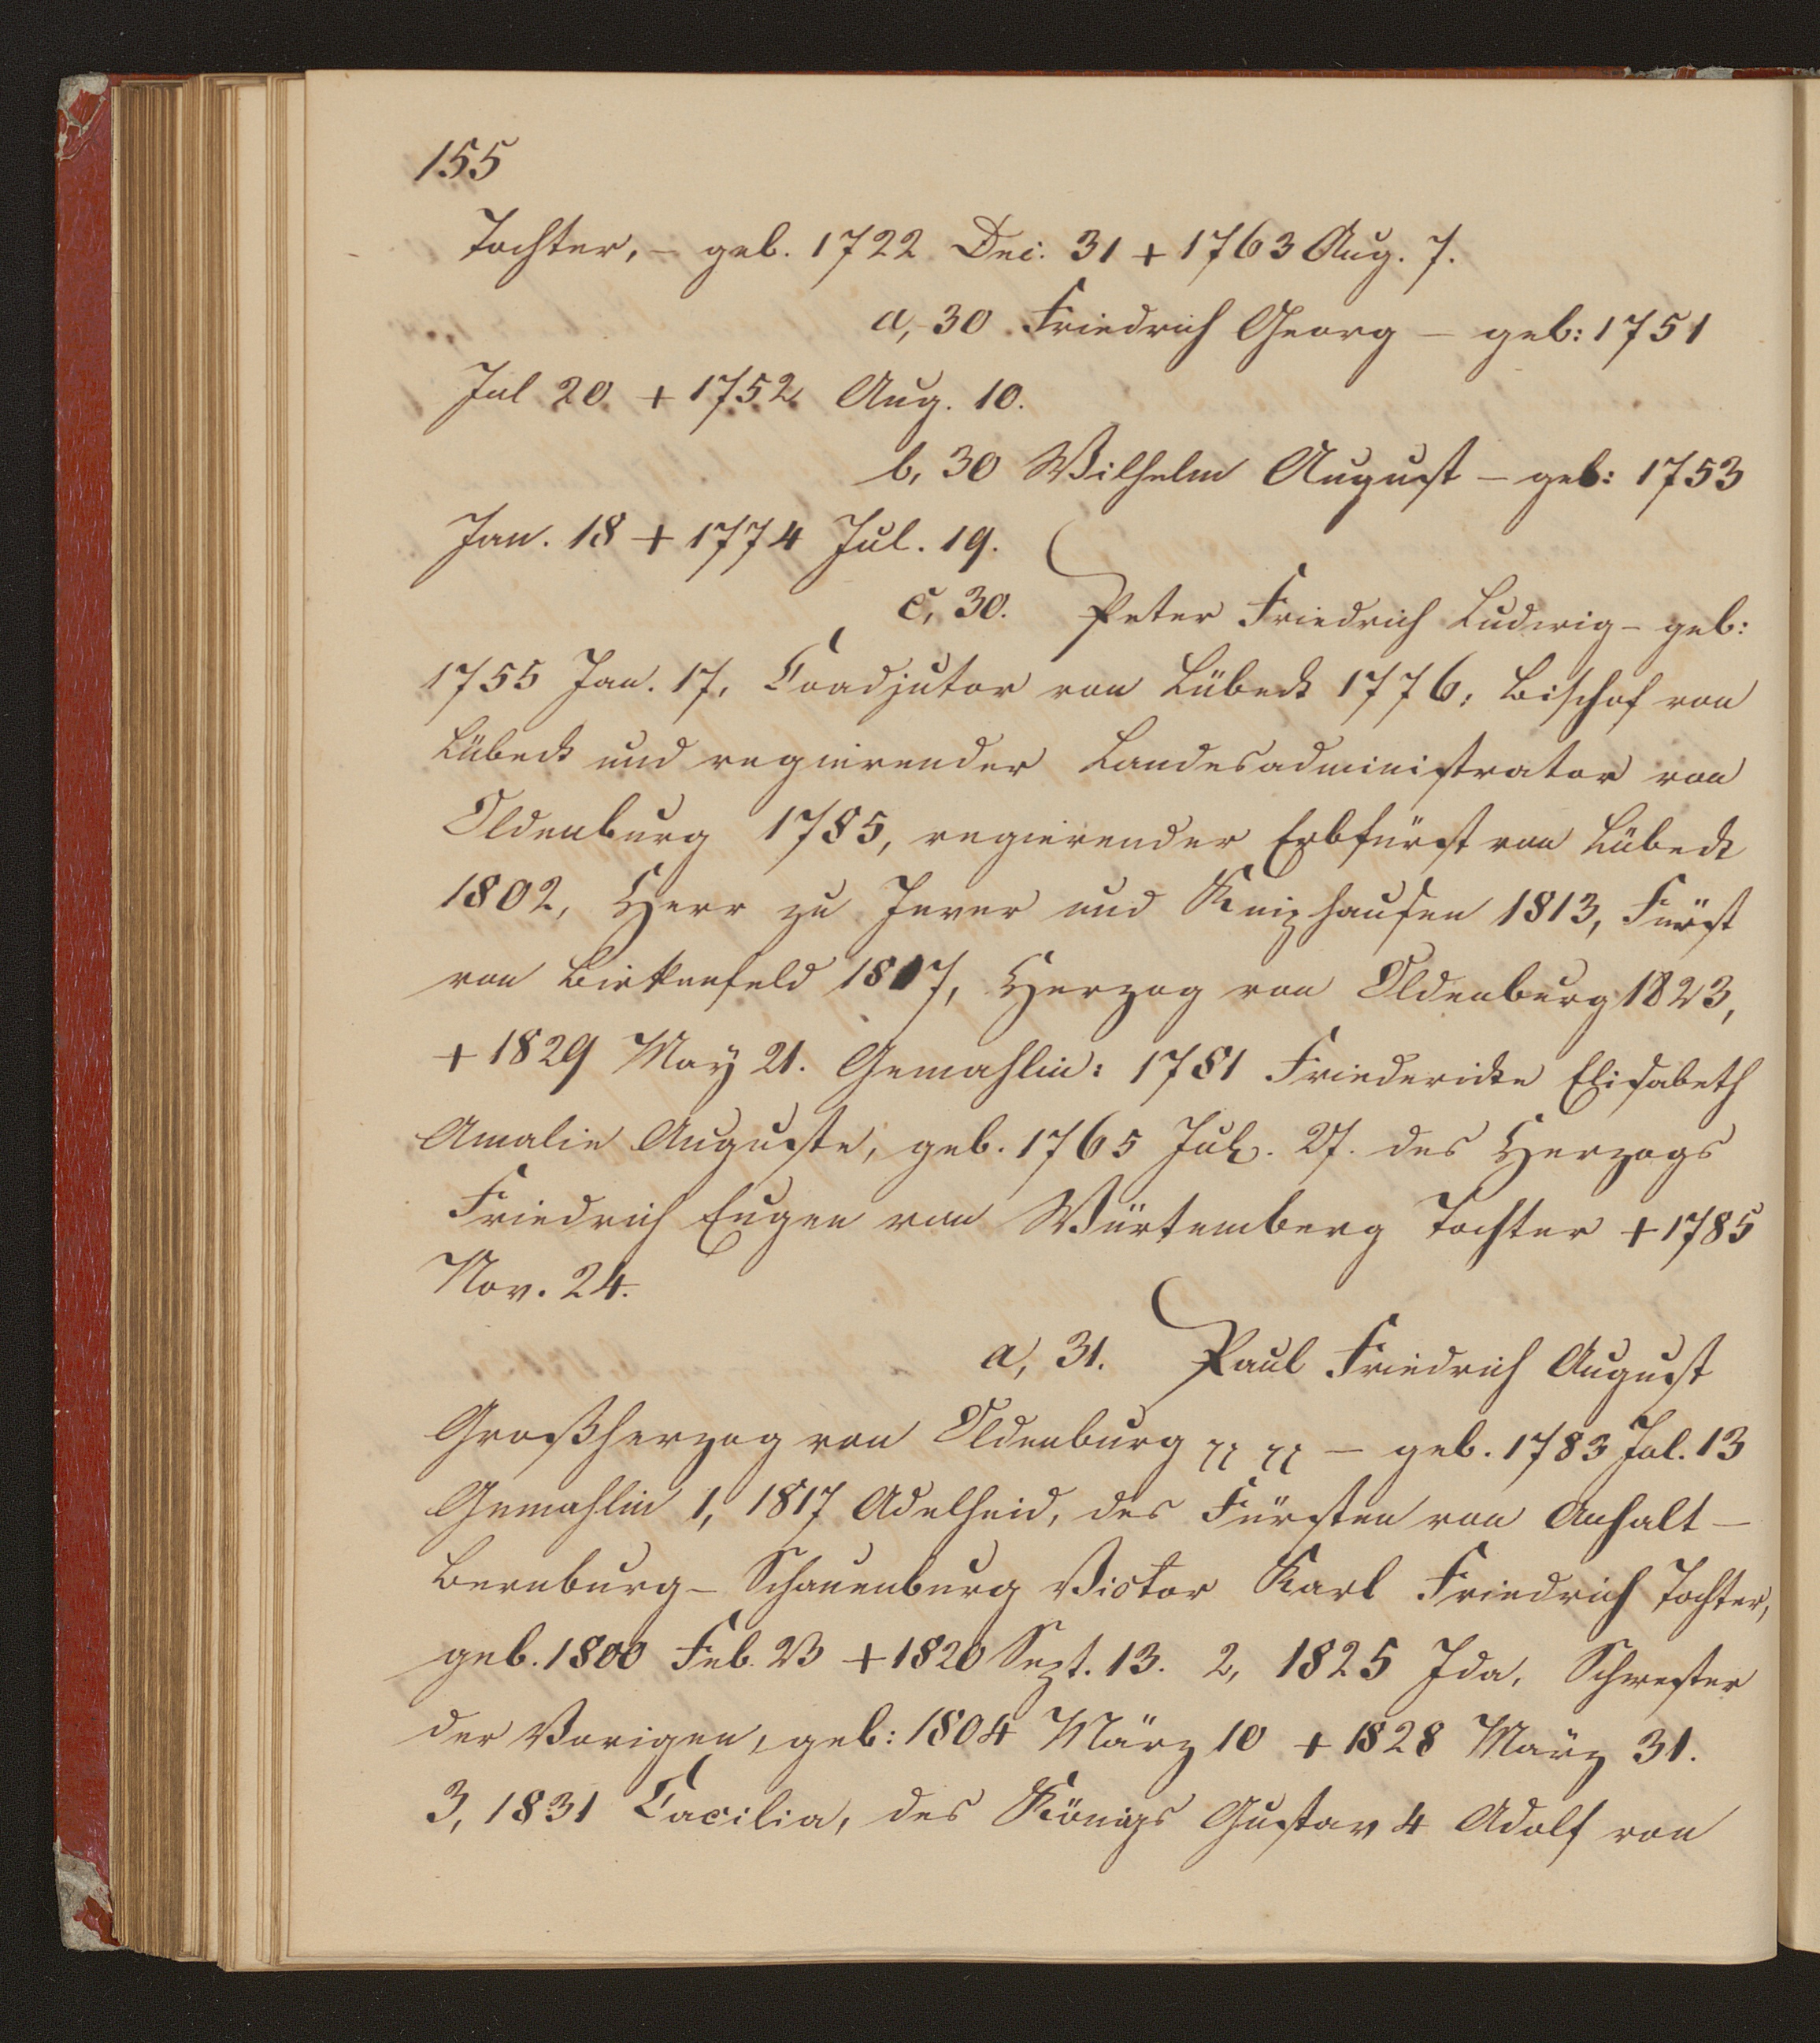 155
Tochter, – geb. 1722 Dec. 31 + 1763 Aug. 7.
a, 30 Friedrich Georg – geb: 1751
Jul 20 + 1752 Aug. 10.
b, 30 Wilhelm August – geb: 1753
Jan. 18 + 1774 Jul. 19.
c, 30. Peter Friedrich Ludwig – geb:
1755 Jan. 17, Coadjutor von Lübeck 1776; Bischof von
Lübeck und regierender Landesadministrator von
Oldenburg 1785, regierender Erbfürst von Lübeck
1802, Herr zu Jever und Kniphausen 1813, Fürst
von Birkenfeld 1817, Herzog von Oldenburg 1823,
+ 1829 May 21. Gemahlin: 1781 Friedericke Elisabeth
Amalie Auguste, geb. 1765 Jul. 27. des Herzogs
Friedrich Eugen von Würtemberg Tochter + 1785
Nov. 24.
a, 31. Paul Friedrich August
Großherzog von Oldenburg – geb. 1783 Jul. 13
Gemahlin 1, 1817 Adelheid, des Fürsten von Anhalt –
Bernburg – Schauenburg Victor Karl Friedrich Tochter,
geb. 1800 Feb. 23 + 1820 Sept. 13. 2, 1825 Ida, Schwester
der Vorigen, geb: 1804 März 10 + 1828 März 31.
3, 1831 Cacilia, des Königs Gustav 4 Adolf von